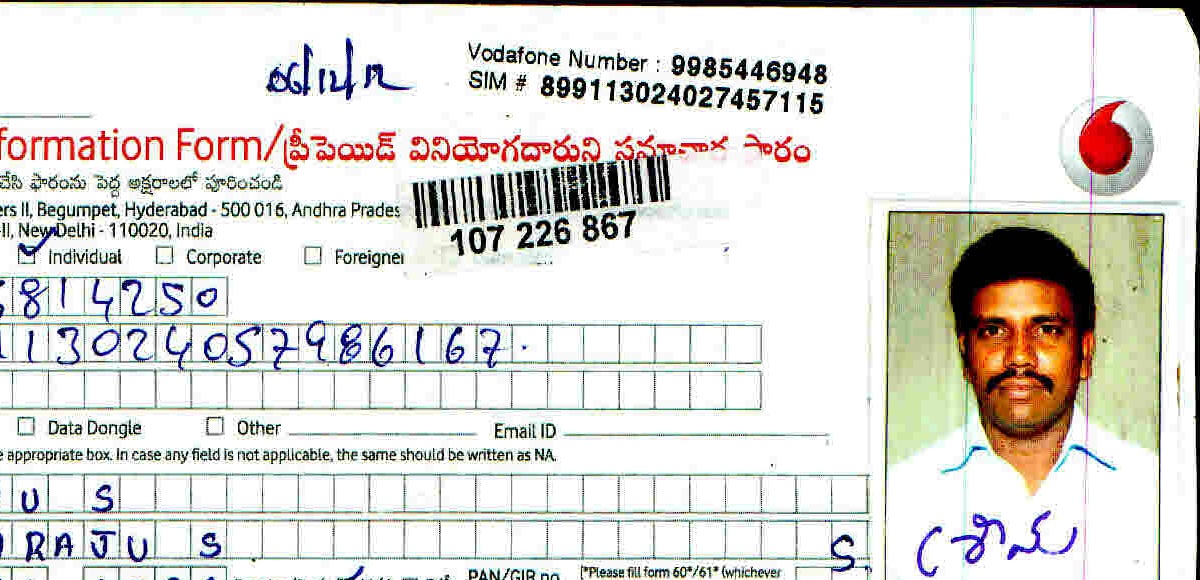 06/12/12
Vodafone Number : 9985446948
SIM # 899113024027457115
formation Form/ప్రీపెయిడ్ వినియోగదారుని సమాచార ఫారం
చేసి ఫారంను పెద్ద అక్షరాలలో పూరించండి
ers II, Begumpet, Hyderabad - 500 016, Andhra Prades
-II, New Delhi - 110020, India
107 226 867
Individual Corporate Foreigner
814250
113024057986167.
Data Dongle Other Email ID
e appropriate box. In case any field is not applicable, the same should be written as NA.
U S
RAJU S S
శ్రీను
PAN/GIR no. (*Please fill form 60*/61* (whichever